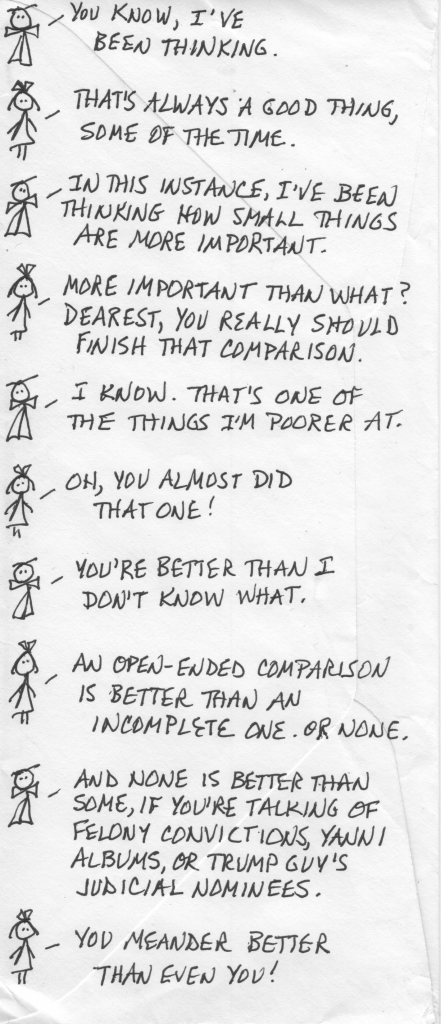 YOU KNOW, I'VE
BEEN THINKING.
THAT'S ALWAYS A GOOD THING,
SOME OF THE TIME.
IN THIS INSTANCE, I'VE BEEN
THINKING HOW SMALL THINGS
ARE MORE IMPORTANT.
MORE IMPORTANT THAN WHAT?
DEAREST, YOU REALLY SHOULD
FINISH THAT COMPARISON.
I KNOW. THAT'S ONE OF
THE THINGS I'M POORER AT.
OH, YOU ALMOST DID
THAT ONE!
YOU'RE BETTER THAN I
DON'T KNOW WHAT.
AN OPEN-ENDED COMPARISON
IS BETTER THAN AN
INCOMPLETE ONE. OR NONE.
AND NONE IS BETTER THAN
SOME, IF YOU'RE TALKING OF
FELONY CONVICTIONS, YANNI
ALBUMS, OR TRUMP GUY'S
JUDICIAL NOMINEES.
YOU MEANDER BETTER
THAN EVEN YOU!